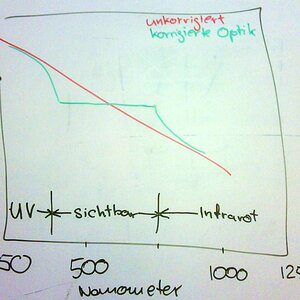 unkorrigiert
korrigierte Optik
UV sichtbar Infrarot
500 1000
Nanometer